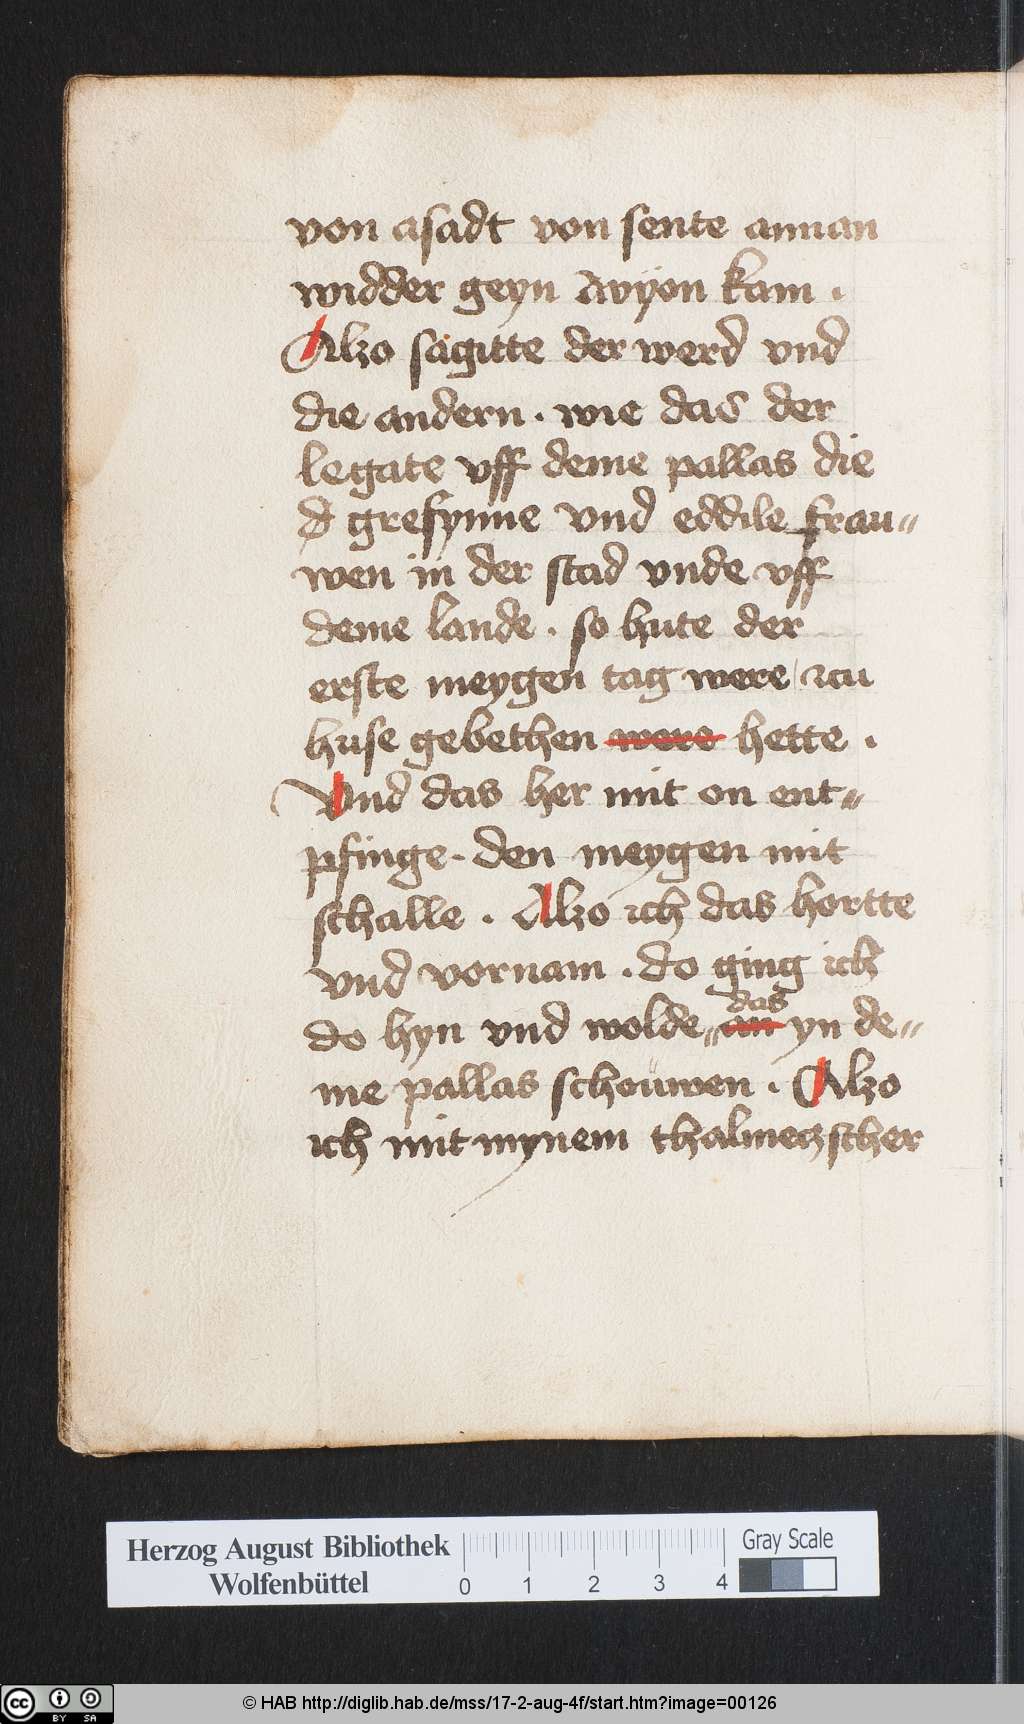 von asadt von sente annan
widder geyn Avÿon kam .
Alzo sagitte der werd vnd
die andern . wie das der
legate vff deme pallas die
grefynne vnd eddile frau=
wen in der stad vnde vff
deme lande . so hute der
erste meygen tag were zcu
huse gebethen were hette .
Vnd das her mit on ent=
pfinge . den meygen mit
schalle . Alzo ich das hortte
vnd vornam . do ging ich
das
do hyn vnd wolde yn de=
me pallas schouwen . Alzo
ich mit mynem thalmeczscher
Herzog August Bibliothek
Wolfenbüttel
0 1 2 3 4
Gray Scale
cc BY SA
© HAB http://diglib.hab.de/mss/17-2-aug-4f/start.htm?image=00126